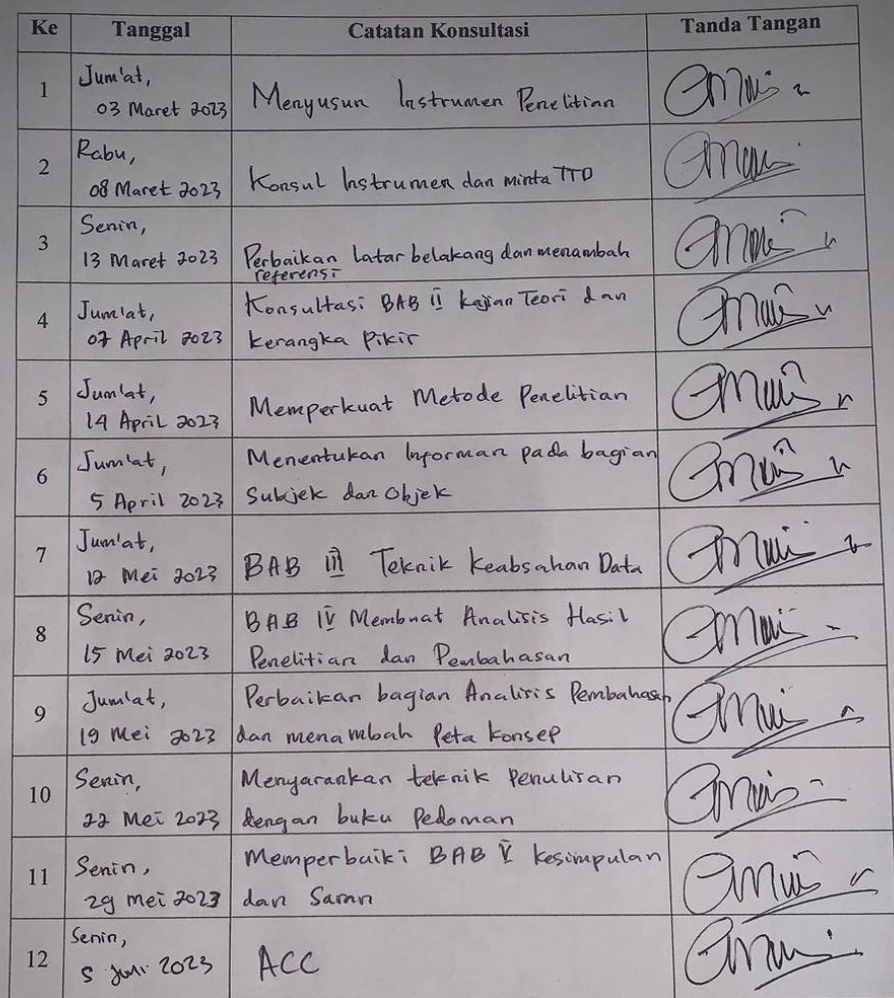 Ke Tanggal Catatan Konsultasi Tanda Tangan
1 Jum'at, 03 Maret 2023 Menyusun Instrumen Penelitian
2 Rabu, 08 Maret 2023 Konsul Instrumen dan minta TTD
3 Senin, 13 Maret 2023 Perbaikan latar belakang dan menambah
referensi
4 Jum'at, 07 April 2023 Konsultasi BAB II Kajian Teori dan
kerangka Pikir
5 Jum'at, 14 April 2023 Memperkuat Metode Penelitian
6 Jum'at, 5 April 2023 Menentukan Informan pada bagian
Subjek dan Objek
7 Jum'at, 12 Mei 2023 BAB III Teknik Keabsahan Data
8 Senin, 15 Mei 2023 BAB IV Membuat Analisis Hasil
Penelitian dan Pembahasan
9 Jum'at, 19 Mei 2023 Perbaikan bagian Analisis Pembahasan
dan menambah Peta Konsep
10 Senin, 22 Mei 2023 Menyarankan teknik Penulisan
dengan buku Pedoman
11 Senin, 29 Mei 2023 Memperbaiki BAB V Kesimpulan
dan Saran
12 Senin, 5 Juni 2023 ACC